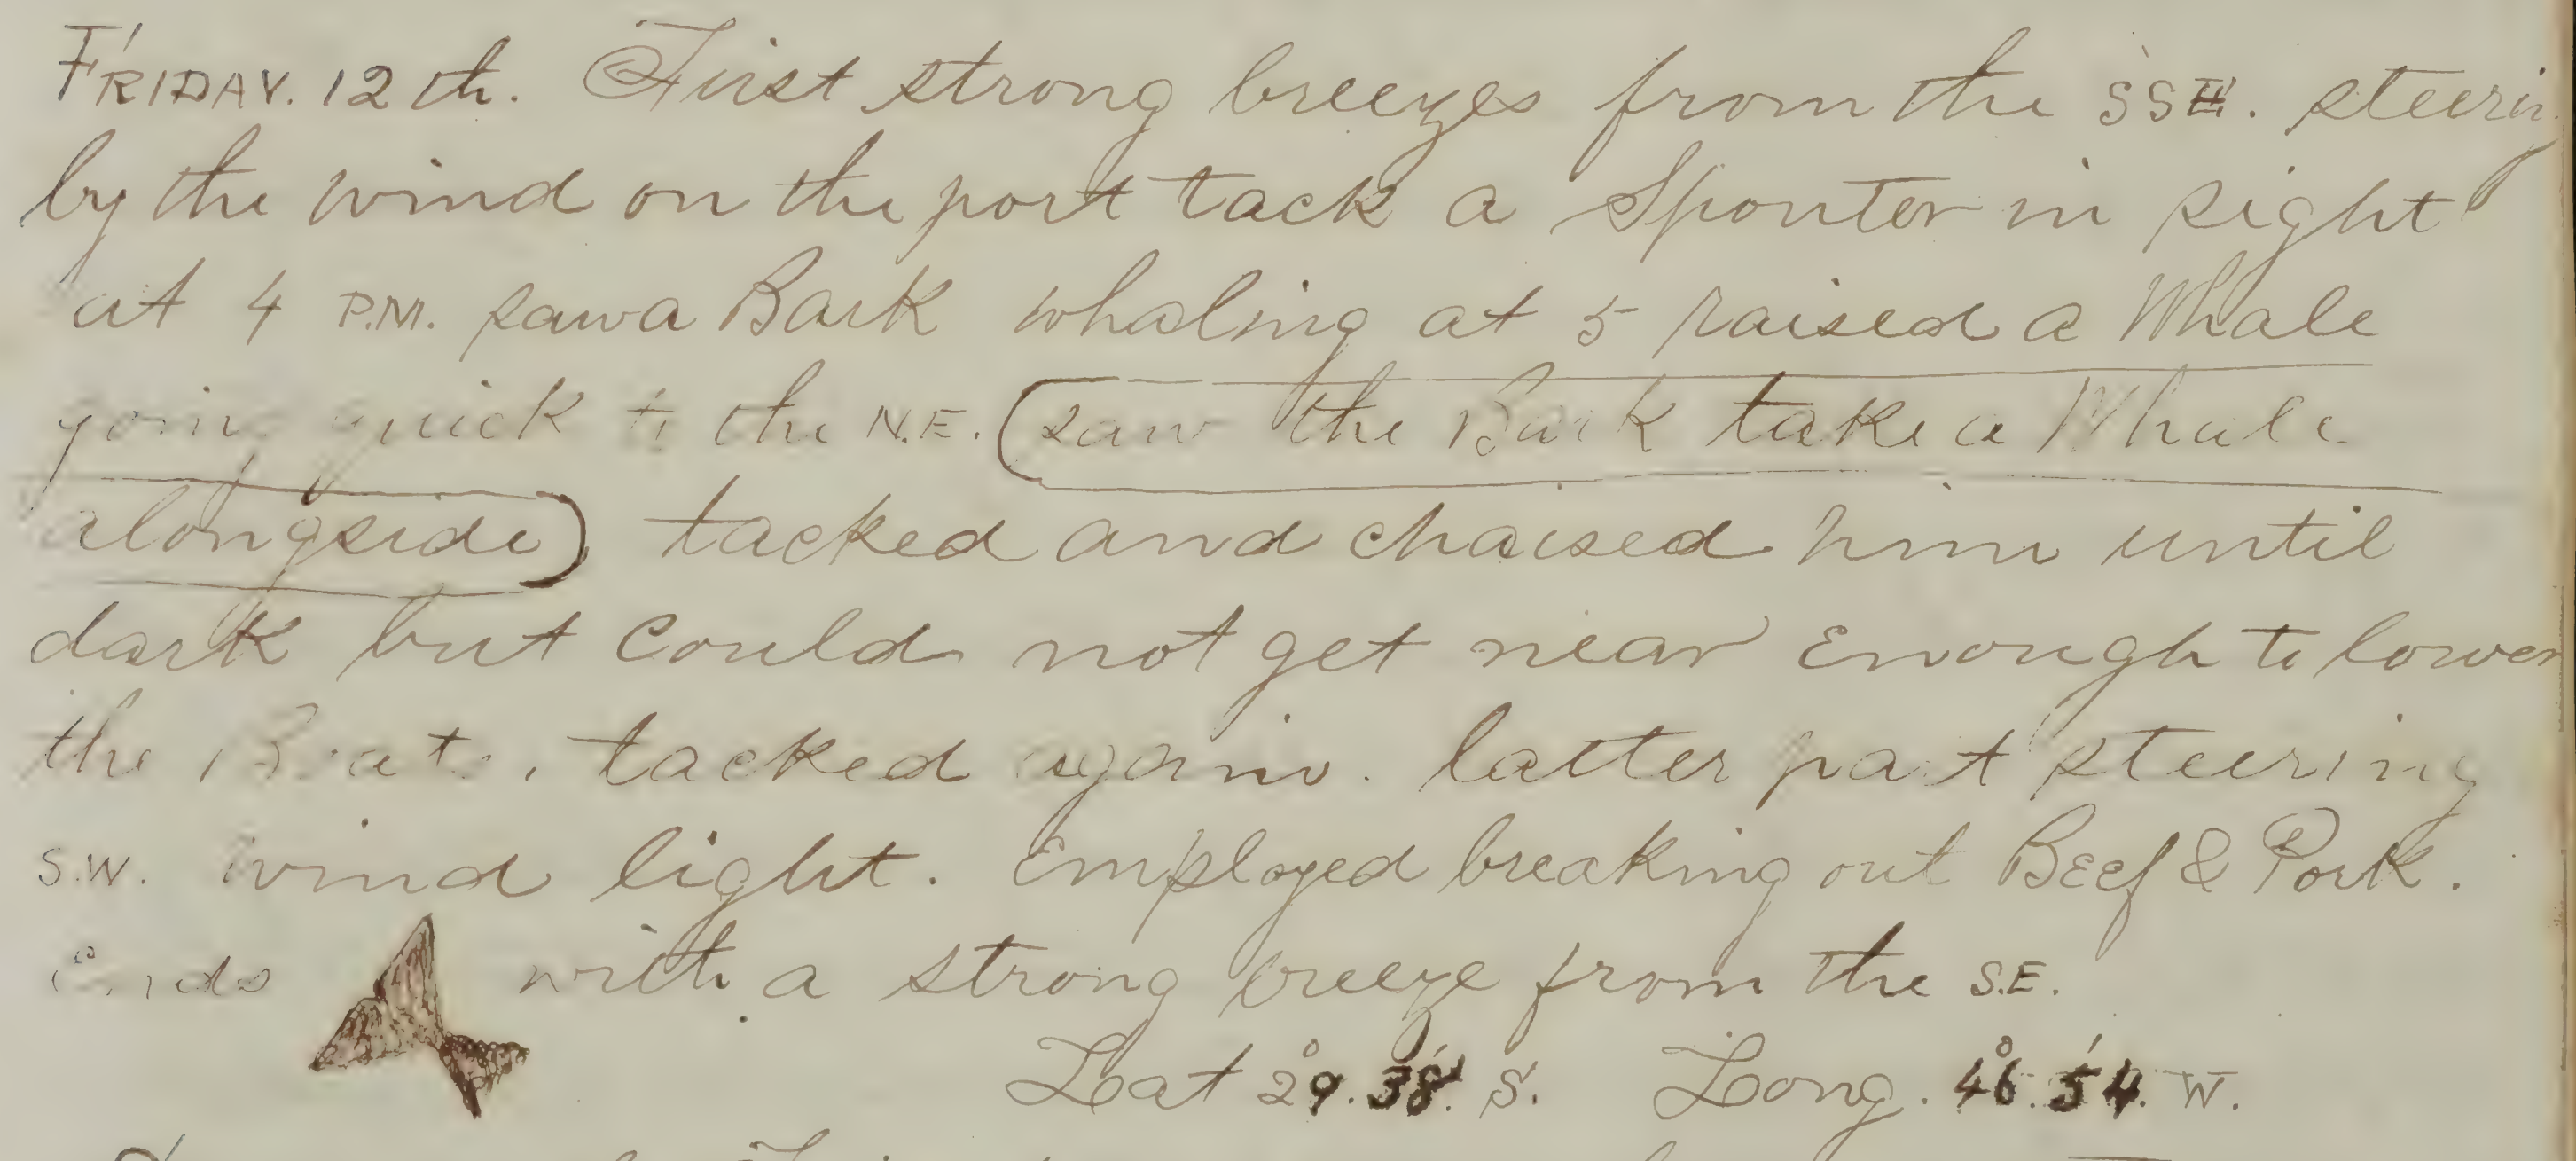 FRIDAY. 12th. First strong breezes from the SSE. steering
by the wind on the port tack a Spouter in sight
at 4 P.M. saw a Bark whaling at 5 raised a Whale
going quick to the N.E. (saw the Bark take a Whale
alongside) tacked and chaised him until
dark but could not get near Enough to lower
the Boats. tacked again. latter part steering
S.W. wind light. Employed breaking out Beef & Pork.
Ends with a strong breeze from the S.E.
Lat 29°.38'. S. Long. 46°.54'. W.